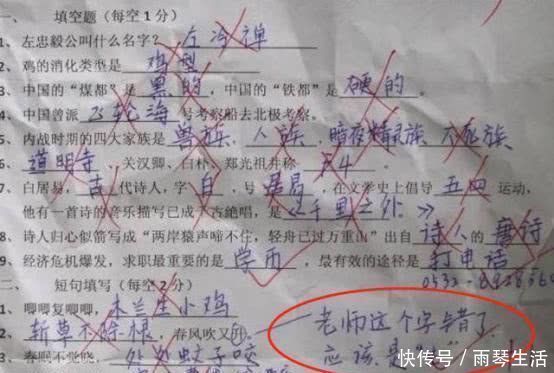 一、 填空题(每空1分)
1、左忠毅公叫什么名字? 左冷禅
2、鸡的消化类型是 鸡型
3、中国的“煤都”是 黑的 ,中国的“铁都”是 硬的 。
4、中国曾派 飞轮海 号考察船去北极考察。
5、内战时期的四大家族是 兽族、人族、暗夜精灵族、不死族
6、 道明寺 、关汉卿、白朴、郑光祖并称 F4 。
7、白居易, 古 代诗人,字 白 ,号 居易 ,在文学史上倡导 五四 运动,
他有一首诗的音乐描写已成千古绝唱,是 《千里之外》
8、诗人归心似箭写成“两岸猿声啼不住,轻舟已过万重山”出自 诗人 的 唐诗
9、经济危机爆发,求职最重要的是 学历 ,最有效的途径是 打电话
二、 短句填写(每空2分)
1、唧唧复唧唧, 木兰生小鸡
2、 斩草不除根 ,春风吹又 老师这个字错了
3、春眠不觉晓, 处处蚊子咬 应该是
快传号/雨琴生活